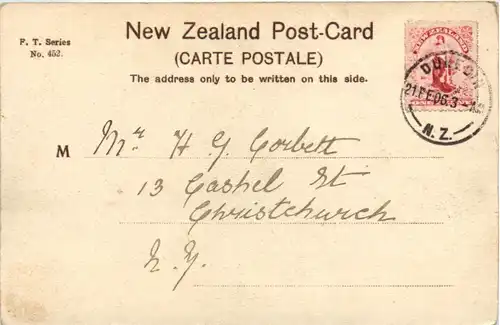 F. T. Series
No. 453.
New Zealand Post-Card
(CARTE POSTALE)
The address only to be written on this side.
DUNEDIN
21 FE 06. 3
N.Z.
M Mr H G Corbett
13 Cashel St
Christchurch
N. Z.